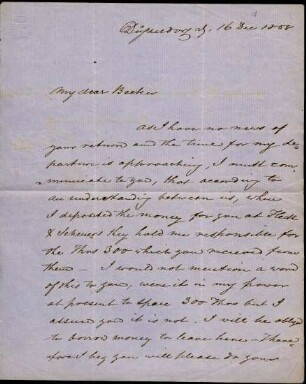 Düsseldorf, 16 Dec 1858
My dear Becker
As I have no news of
your return and the time for my de-
parture is approaching, I must com-
municate to you, that according to
an understanding between us, when
I deposited the money for you at
& Scheuers they hold me responsible for
the Thas 300 which you received from
them - I would not mention a word
of this to you, were it in my power
at present to spare 300 Thas but I
assure you it is not. I will be obliged
to borrow money to leave here - There-
fore I beg you will please do your